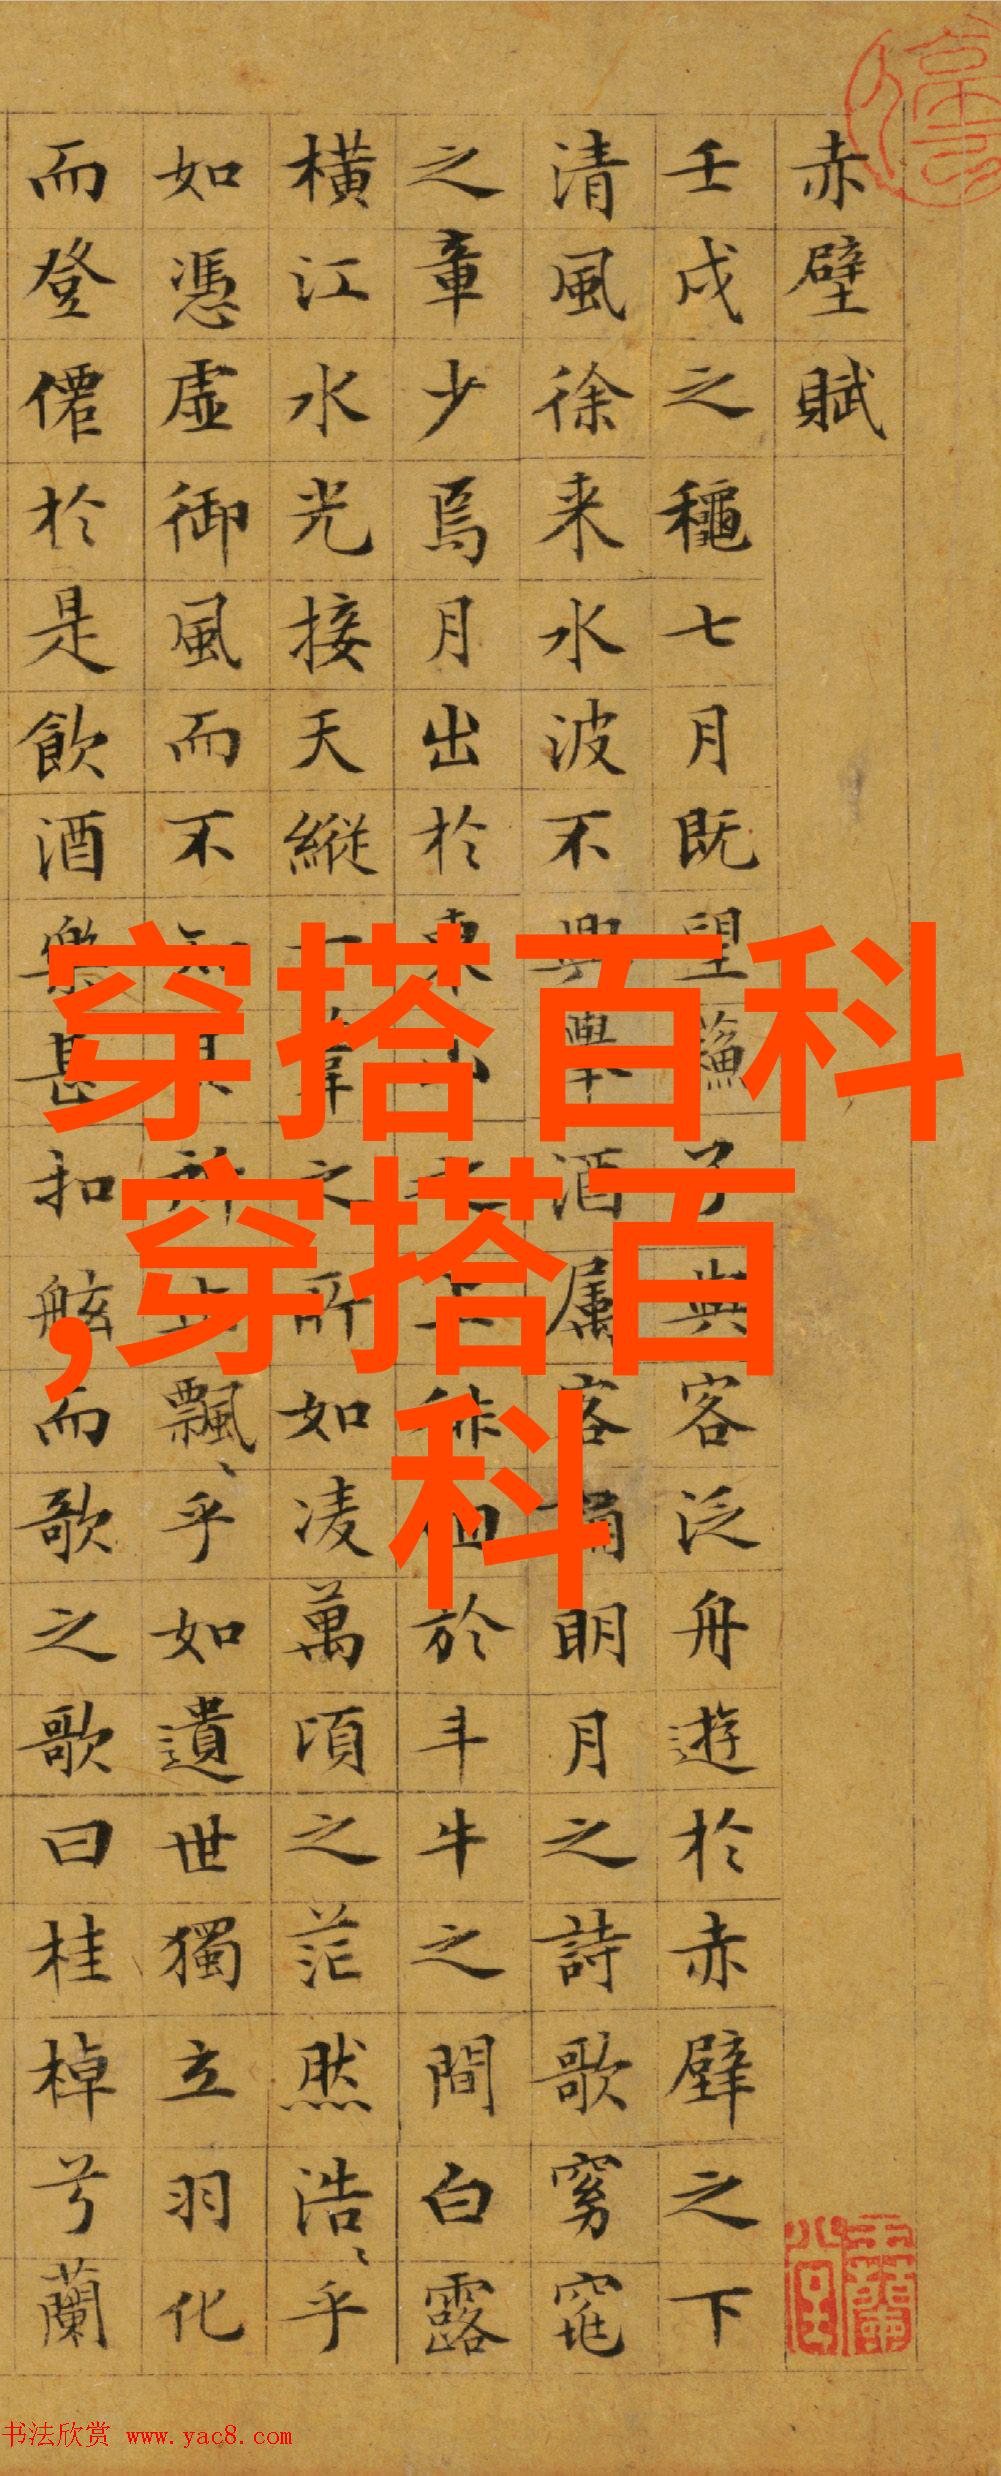 赤壁賦
壬戌之穐七月既望蘓子與客泛舟遊於赤壁之下
清風徐来水波不興舉酒属客誦明月之詩歌窈窕
之章少焉月出於東山之上徘徊於斗牛之間白露
橫江水光接天縱一葦之所如凌萬頃之茫然浩、乎
如憑虛御風而不知其所止飄、乎如遺世獨立羽化
而登僊於是飲酒樂甚扣舷而歌之歌曰桂棹兮蘭
穿搭百科
,穿搭百
科
书法欣赏 www.yac8.com